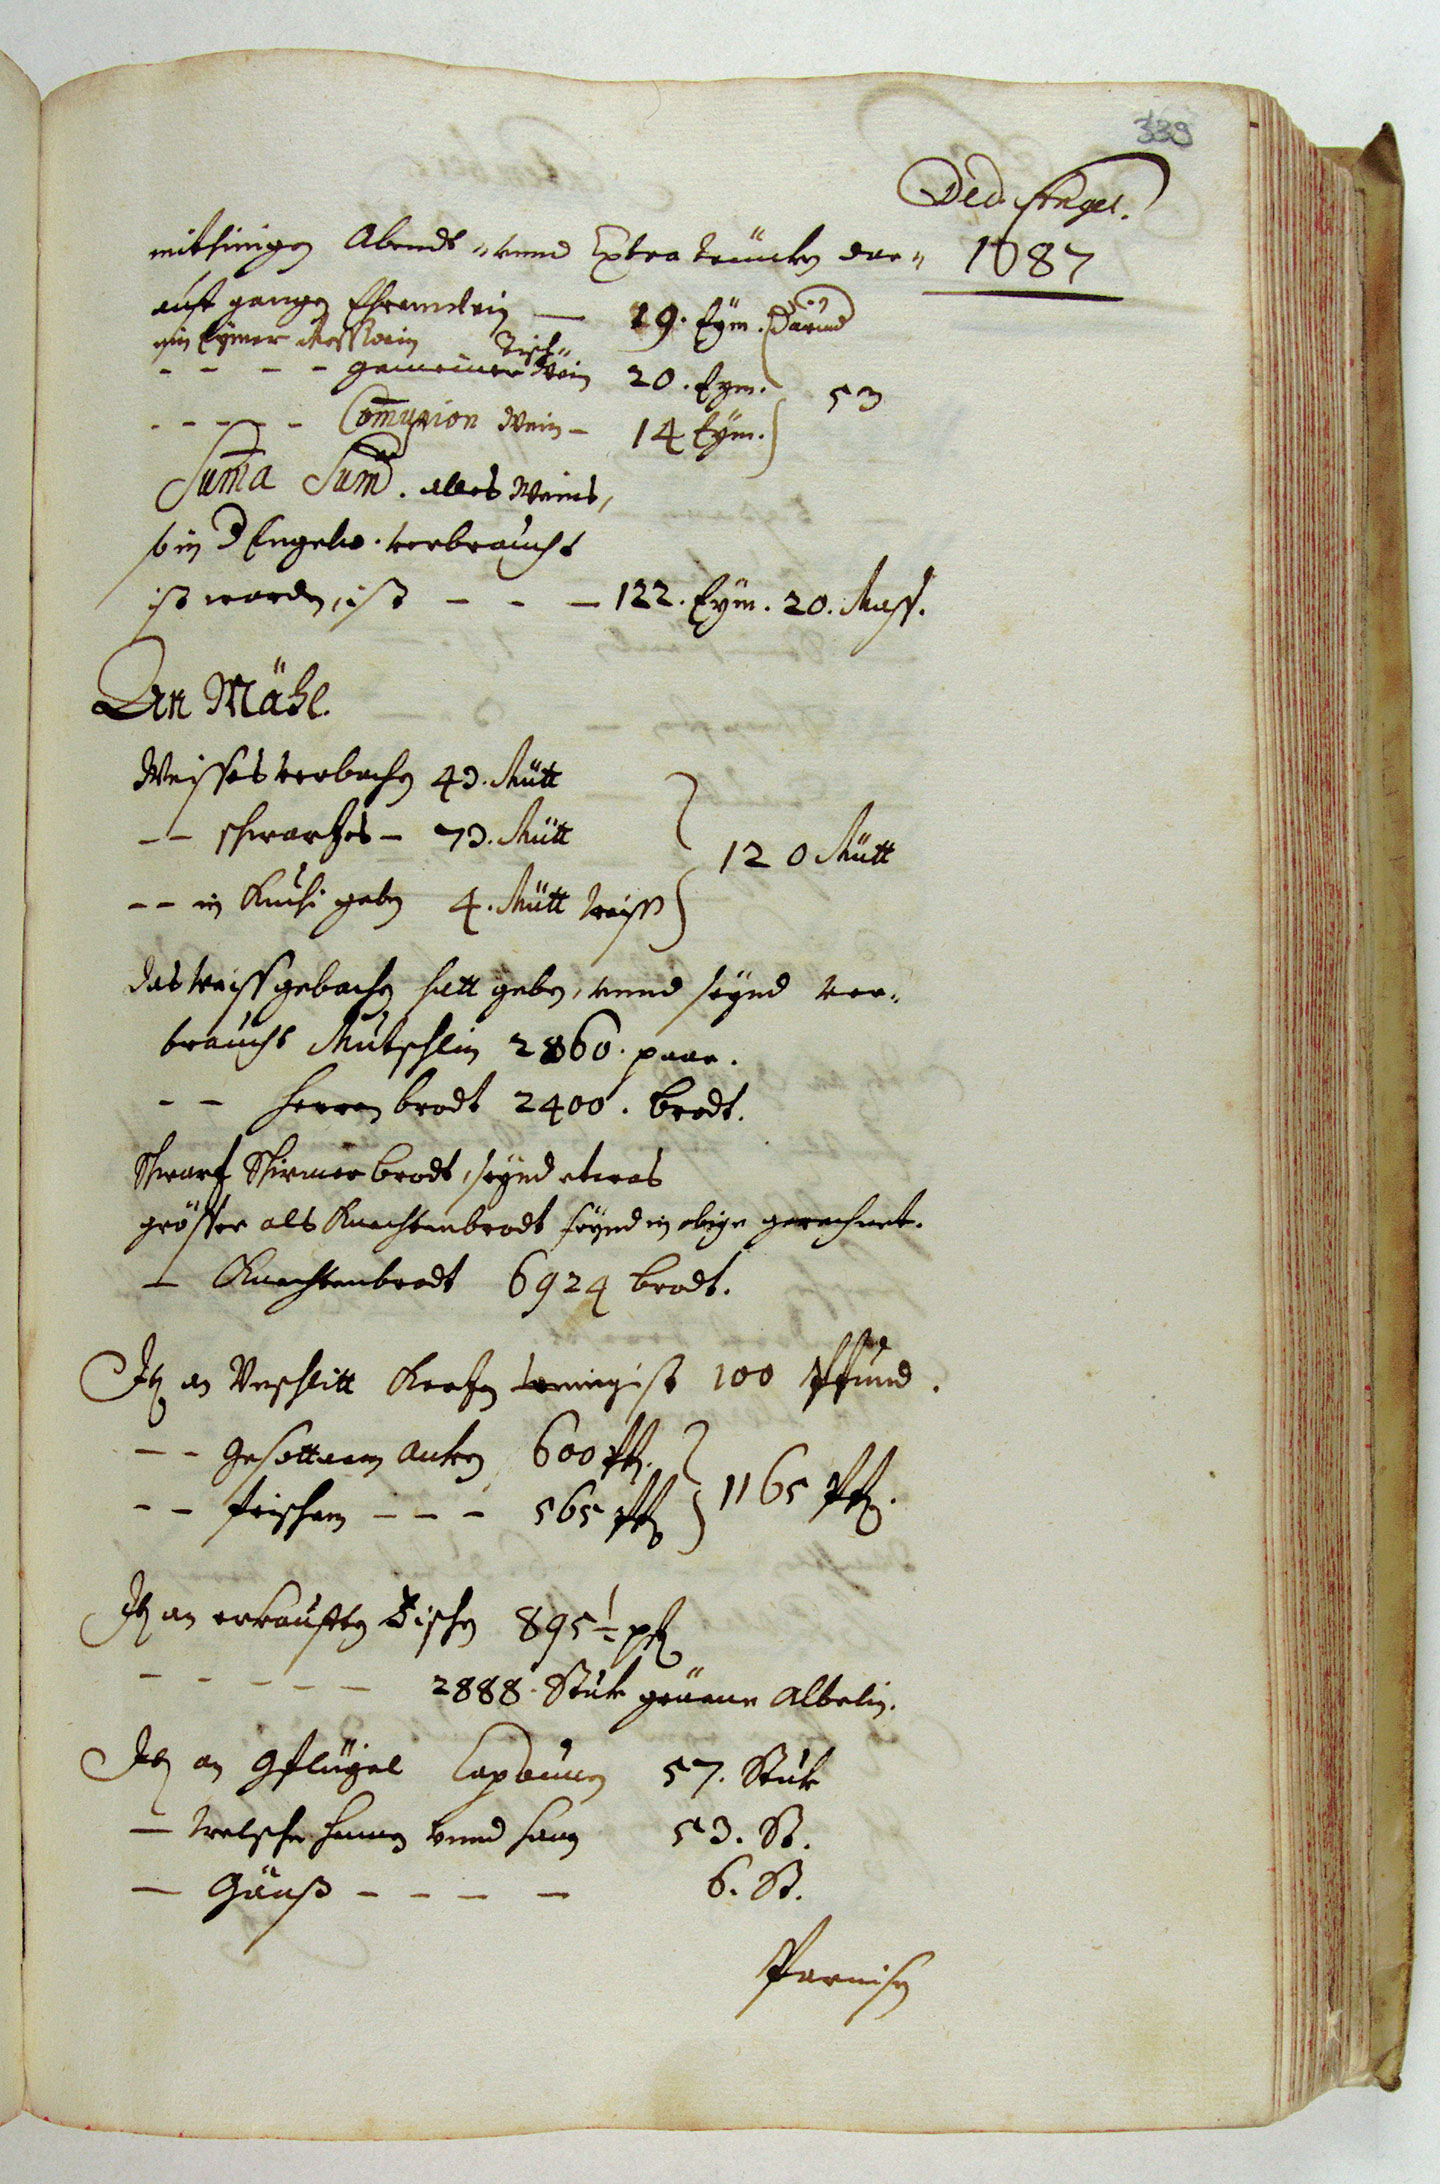 339
Ded. Angel.
1687
mithinigen Abendt- vnnd Extra Trüncken dar-
auff gangen Ehrenwein — 19. Eym. Darund
ein Eymer Messwein
- - - - gemeiner Tisch- Wein 20. Eym. 53
- - - - - Comunion Wein - 14 Eym.
Suma Sum. alles Weins,
so in d Engelw. verbraucht
ist worden, ist - - - 122. Eym. 20. Mass.
An Mähl.
Weisses verbachen 43. Mütt
- - schwartzes - 73. Mütt 120 Mütt
- - in Kuchi geben 4. Mütt weiss
das weiss gebachen hatt geben, vnnd seynd ver-
braucht Mutschlin 2860. paar.
- - Herren brodt 2400. brodt.
Schwartz Schirmer brodt, seynd etwas
grösser als Knechtenbrodt seynd in obige gerechnet.
- Knechtenbrodt 6924 brodt.
It an Vnschlitt Kertzen wenigist 100 Pfund.
- - gesottenem Ancken 600 Pf.
- - frischem - - - 565 Pf 1165 Pf.
It an erkaufften Fischen 895 1/2 pf
- - - - - 2888. Stuk grüene Albelin.
It an Gflügel Capaunen 57. Stuk
- Welsche Hennen vnnd Hanen 53. St.
- Gänss - - - - 6. St.
Parnisen